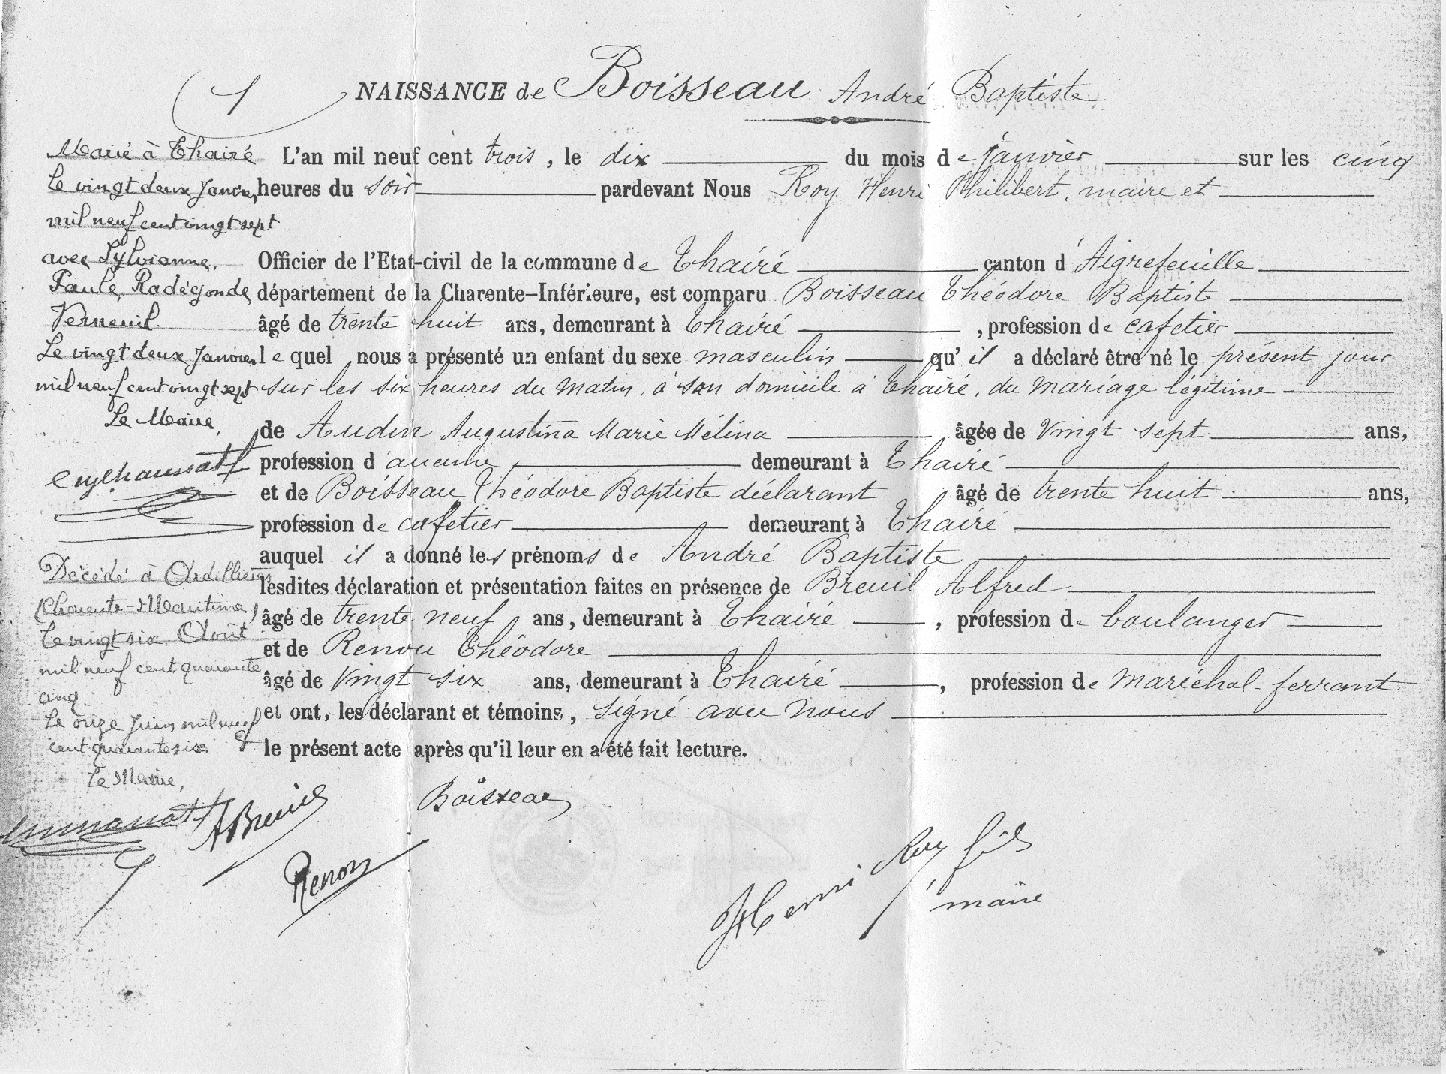 1
NAISSANCE de Boisseau André Baptiste
L'an mil neuf cent trois, le dix du mois de janvier sur les cinq
heures du soir pardevant Nous Roy Henri Philibert, maire et
Officier de l'Etat-civil de la commune de Thairé canton d'Aigrefeuille
département de la Charente-Inférieure, est comparu Boisseau Théodore Baptiste
âgé de trente huit ans, demeurant à Thairé, profession de cafetier
lequel nous a présenté un enfant du sexe masculin qu'il a déclaré être né le présent jour
sur les six heures du matin, à son domicile à Thairé, du mariage légitime
de Audin Augustina Marie Mélina âgée de vingt sept ans,
profession d'aucune demeurant à Thairé
et de Boisseau Théodore Baptiste déclarant âgé de trente huit ans,
profession de cafetier demeurant à Thairé
auquel il a donné les prénoms de André Baptiste
lesdites déclaration et présentation faites en présence de Breuil Alfred
âgé de trente neuf ans, demeurant à Thairé, profession de boulanger
et de Renou Théodore
âgé de vingt six ans, demeurant à Thairé, profession de maréchal-ferrant
et ont, les déclarant et témoins, signé avec nous
le présent acte après qu'il leur en a été fait lecture.
Marié à Thairé
le vingt deux Janvier
mil neuf cent vingt sept
avec Sylvianne,
Paule, Radégonde,
Verneuil.
Le vingt deux Janvier
mil neuf cent vingt sept
Le Maire,
Décédé à Ardillières
(Charente-Maritime)
le vingt six Août
mil neuf cent quarante
cinq
Le onze Juin mil neuf
cent quarante six
Le Maire,
ABreuil
Boisseau
Renou
Henri Roy fils
maire